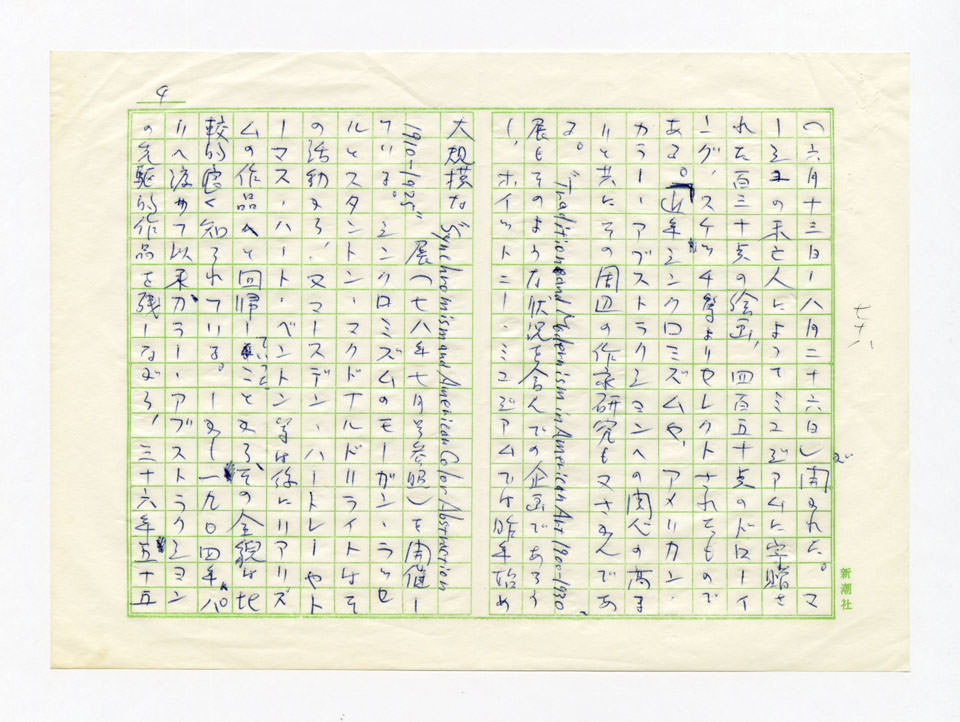 4
(六月十三日ー八月二十六日)開かれた。マ
ーシュの未亡人によってミュジアムに寄贈さ
れた百三十点の絵画、四百五十点のドローイ
ング、スケッチ等よりセレクトされたもので
ある。近年シンクロミズムや、アメリカン・
カラー・アブストラクションへの関心の高ま
りと共にその周辺の作家研究もマさかんであ
る。"Tradition and Modernism in American Art 1900-1930"
展もそのような状況を含んでの企画であろう
し、ホイットニー・ミュジアムでは昨年始め
大規模な"Synchromism and American Color Abstraction
1910-1925"展(七八年七月号参照)を開催し
ている。シンクロミズムのモーガン・ラッセ
ルとスタントン・マクドナルドリライトはそ
の活動から、又マースデン・ハートレーやト
ーマス・ハート・ベントン等は後にリアリズ
ムの作品へと回帰していったことから、その全貌は比
較的良く知られている。しかし一九〇四年、パ
リへ渡めて以来カラー・アブストラクション
の先駆的作品を残しながら、三十六年五十五
七十八
新潮社